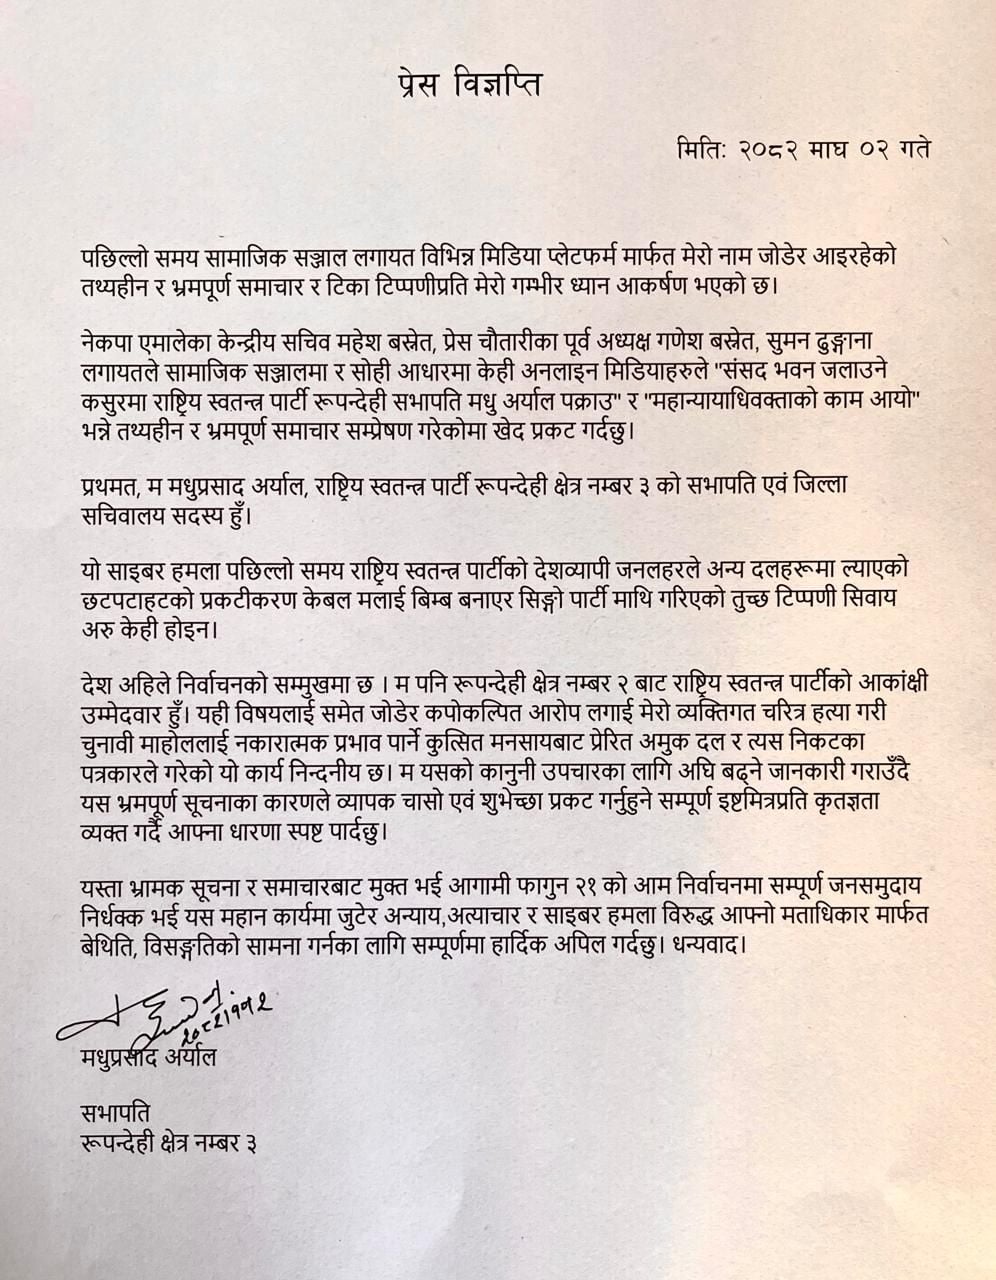 प्रेस विज्ञप्ति
मितिः २०८२ माघ ०२ गते
पछिल्लो समय सामाजिक सञ्जाल लगायत विभिन्न मिडिया प्लेटफर्म मार्फत मेरो नाम जोडेर आइरहेको
तथ्यहीन र भ्रमपूर्ण समाचार र टिका टिप्पणीप्रति मेरो गम्भीर ध्यान आकर्षण भएको छ।
नेकपा एमालेका केन्द्रीय सचिव महेश बस्नेत, प्रेस चौतारीका पूर्व अध्यक्ष गणेश बस्नेत, सुमन ढुङ्गाना
लगायतले सामाजिक सञ्जालमा र सोही आधारमा केही अनलाइन मिडियाहरुले "संसद भवन जलाउने
कसुरमा राष्ट्रिय स्वतन्त्र पार्टी रूपन्देही सभापति मधु अर्याल पक्राउ" र "महान्यायाधिवक्ताको काम आयो"
भन्ने तथ्यहीन र भ्रमपूर्ण समाचार सम्प्रेषण गरेकोमा खेद प्रकट गर्दछु।
प्रथमत, म मधुप्रसाद अर्याल, राष्ट्रिय स्वतन्त्र पार्टी रूपन्देही क्षेत्र नम्बर ३ को सभापति एवं जिल्ला
सचिवालय सदस्य हुँ।
यो साइबर हमला पछिल्लो समय राष्ट्रिय स्वतन्त्र पार्टीको देशव्यापी जनलहरले अन्य दलहरूमा ल्याएको
छटपटाहटको प्रकटीकरण केबल मलाई बिम्ब बनाएर सिङ्गो पार्टी माथि गरिएको तुच्छ टिप्पणी सिवाय
अरु केही होइन।
देश अहिले निर्वाचनको सम्मुखमा छ । म पनि रूपन्देही क्षेत्र नम्बर २ बाट राष्ट्रिय स्वतन्त्र पार्टीको आकांक्षी
उम्मेदवार हुँ। यही विषयलाई समेत जोडेर कपोकल्पित आरोप लगाई मेरो व्यक्तिगत चरित्र हत्या गरी
चुनावी माहोललाई नकारात्मक प्रभाव पार्ने कुत्सित मनसायबाट प्रेरित अमुक दल र त्यस निकटका
पत्रकारले गरेको यो कार्य निन्दनीय छ। म यसको कानुनी उपचारका लागि अघि बढ्ने जानकारी गराउँदै
यस भ्रमपूर्ण सूचनाका कारणले व्यापक चासो एवं शुभेच्छा प्रकट गर्नुहुने सम्पूर्ण इष्टमित्रप्रति कृतज्ञता
व्यक्त गर्दै आफ्ना धारणा स्पष्ट पार्दछु।
यस्ता भ्रामक सूचना र समाचारबाट मुक्त भई आगामी फागुन २१ को आम निर्वाचनमा सम्पूर्ण जनसमुदाय
निर्धक्क भई यस महान कार्यमा जुटेर अन्याय,अत्याचार र साइबर हमला विरुद्ध आफ्नो मताधिकार मार्फत
बेथिति, विसङ्गतिको सामना गर्नका लागि सम्पूर्णमा हार्दिक अपिल गर्दछु। धन्यवाद।
मधुप्रसाद अर्याल
सभापति
रूपन्देही क्षेत्र नम्बर ३